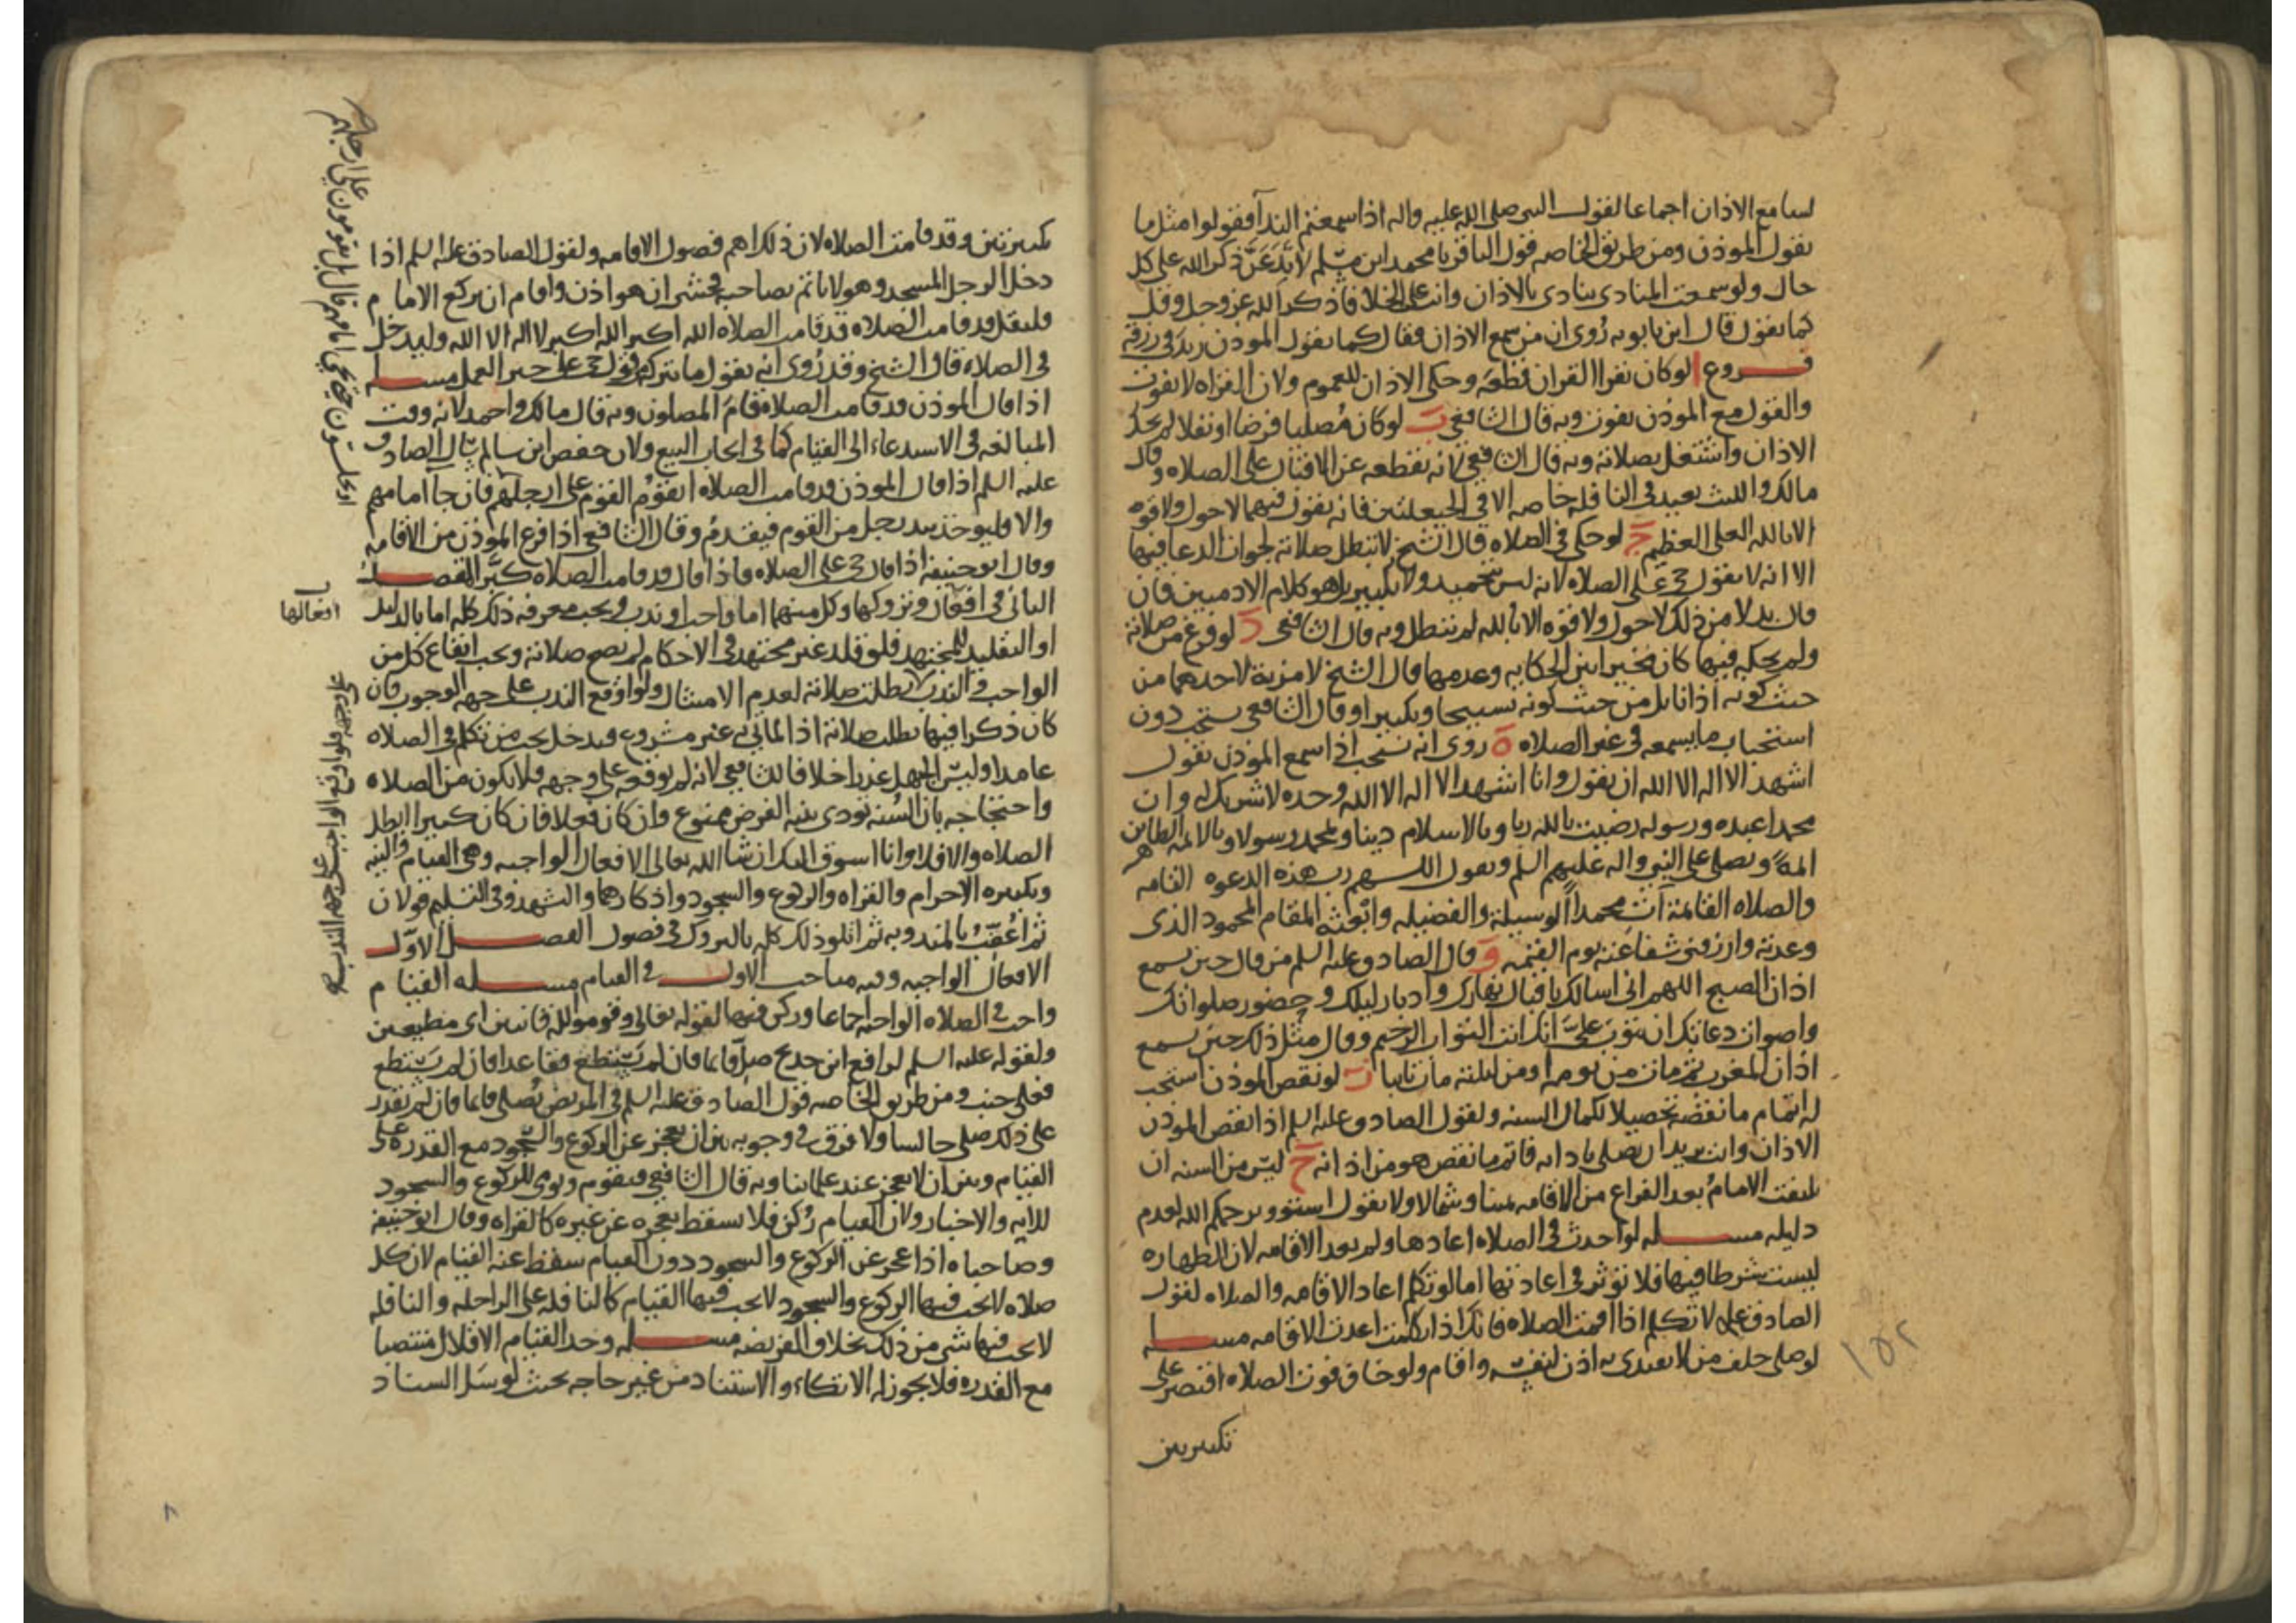 لسامع الاذان اجماعا لقول النبى صلى الله عليه واله اذا سمعتم الندآ فقولوا مثل ما
يقول الموذن ومن طريق الخاصه قول الباقر يا محمد ابن مسلم لا تدعن ذكر الله على كل
حال ولو سمعت المنادى ينادى بالاذان وانت على الخلا فاذكر الله عز وجل وقل
كما يقول قال ابن بابويه رُوى ان من سمع الاذان وقال كما يقول الموذن زيد فى رزقه
فروع ا لو كان يقرا القران قطعه وحكى الاذان للعموم ولان القراه لا يفوت
والقول مع الموذن يفوت وبه قال الشافعى ب لو كان مُصليا فرضا او نفلا لم يحك
الاذان واشتغل بصلاته وبه قال الشافعى لانه يقطعه عن الاقبال على الصلاه وقال
مالك والليث يعيد فى النافله خاصه الا فى الحيعلتين فانه يقول فيهما لا حول ولا قوه
الا بالله العلى العظيم ج لو حكى فى الصلاه قال الشيخ لا تبطل صلاته لجواز الدعا فيها
الا انه لا يقول حى على الصلاه لانه ليس بتحميد ولا تكبير بل هو كلام الادميين فان
قال بدلا من ذلك لا حول ولا قوه الا بالله لم تبطل وبه قال الشافعى د لو فرغ من صلاته
ولم يحكه فيها كان مخيرا بين الحكايه وعدمها قال الشيخ لا مزية لاحدهما من
حيث كونه اذانا بل من حيث كونه تسبيحا وتكبيرا وقال الشافعى يستحب دون
استحباب ما يسمعه فى غير الصلاه ه روى انه يستحب اذا سمع الموذن يقول
اشهد الا اله الا الله ان يقول وانا اشهد الا اله الا الله وحده لا شريك له وان
محمدا عبده ورسوله رضيت بالله ربا وبالاسلام دينا وبمحمد رسولا وبالائمه الطاهرين
ائمة ويصلى على النبى واله عليهم السلم ويقول اللهم رب هذه الدعوه التامه
والصلاه القائمة آت محمداً الوسيلة والفضيله وابعثه المقام المحمود الذى
وعدته وارزقنى شفاعته يوم القيمه و قال الصادق عليه السلم من قال حين يسمع
اذان الصبح اللهم انى اسالك باقبال نهارك وادبار ليلك وحضور صلواتك
واصوات دعاتك ان تتوب علىّ انك انت التواب الرحيم وقال مثل ذلك حين يسمع
اذان المغرب ثم مات من يومه او من ليلته مات تايبا ز لو نقص الموذن استحب
له اتمام ما نقصه تحصيلا لكمال السنه ولقول الصادق عليه السلم اذا نقص الموذن
الاذان وانت تريد ان تصلى باذانه فاتم ما نقص هو من اذانه ح ليس من السنه ان
يلتفت الامام بعد الفراغ من الاقامه يمينا وشمالا ولا يقول استووا يرحمكم الله لعدم
دليله مسله لو احدث فى الصلاه اعادها ولم يعد الاقامه لان الطهاره
ليست شرطا فيها فلا تؤثر فى اعادتها اما لو تكلم اعاد الاقامه والصلاه لقول
الصادق عليه لا تتكلم اذا اقمت الصلاه فانك اذا تكلمت اعدت الاقامه مسله
لو صلى خلف من لا يقتدى به اذن لنفسه واقام ولو خاف فوت الصلاه اقتصر على
تكبيرتين
١٥٢
تكبيرتين وقد قامت الصلاه لان ذلك اهم فصول الاقامه ولقول الصادق عليه السلم اذا
دخل الرجل المسجد وهو لا ياتم بصاحبه فخشى ان هو اذن واقام ان يركع الامام
فليقل قد قامت الصلاه قد قامت الصلاه الله اكبر الله اكبر لا اله الا الله وليدخل
فى الصلاه قال الشيخ وقد رُوى انه يقول ما يتركه من قول حى على خير العمل مسله
اذا قال الموذن قد قامت الصلاه قام المصلون وبه قال مالك واحمد لانه وقت
المبالغه فى الاستدعاء الى القيام كما فى ايجاب البيع ولان حفص ابن سالم سال الصادق
عليه السلم اذا قال الموذن قد قامت الصلاه ايقوم القوم على ارجلهم فان جآ امامهم
والا فليوخذ بيد رجل من القوم فيقدم وقال الشافعى اذا فرغ الموذن من الاقامه
وقال ابو حنيفه اذا قال حى على الصلاه فاذا قال قد قامت الصلاه كبّر الفصل
الثانى فى افعال وتروكها وكل منهما اما واجب او ندب ويجب معرفه ذلك كله اما بالدليل
او التقليد للمجتهد فلو قلد غير مجتهد فى الاحكام لم تصح صلاته ويجب ايقاع كل من
الواجب والندب بطلت صلاته لعدم الامتثال ولو اوقع الندب على جهه الوجوب فان
كان ذكرا فيها بطلت صلاته اذ الماتى به غير مشروع فيدخل تحت من تكلم فى الصلاه
عامدا وليس الجهل عذرا خلافا للشافعى لانه لم يوقعه على وجهه فلا يكون من الصلاه
واحتجاجه بان السنه تودى بنيه الفرض ممنوع وان كان فعلا فان كان كثيرا ابطل
الصلاه والا فلا وانا اسوق اليك ان شا الله تعالى الافعال الواجبه وهى القيام والنيه
وتكبيره الاحرام والقراه والركوع والسجود واذكارهما والتشهد وفى التسليم قولان
ثم اُعقّب بالمندوبه ثم اتلو ذلك كله بالتروك فى فصول الفصل الاول
الافعال الواجبه وفيه مباحث الاول فى القيام مسله القيام
واجب فى الصلاه الواجبه اجماعا وركن فيها لقوله تعالى وقوموا لله قانتين اى مطيعين
ولقوله عليه السلم لرافع ابن خديج صل قايما فان لم يستطع فقاعدا فان لم يستطع
فعلى جنب ومن طريق الخاصه قول الصادق عليه السلم فى المريض يُصلى قايما فان لم يقدر
على ذلك صلى جالسا ولا فرق فى وجوبه بين ان يعجز عن الركوع والسجود مع القدره على
القيام وبين ان لا يعجز عند علمائنا وبه قال الشافعى فيقوم ويومى للركوع والسجود
للايه والاخبار ولان القيام رُكن فلا يسقط بعجزه عن غيره كالقراه وقال ابو حنيفه
وصاحباه اذا عجز عن الركوع والسجود دون القيام سقط عنه القيام لان كل
صلاه لا يجب فيها الركوع والسجود لا يجب فيها القيام كالنافله على الراحله والنافله
لا يجب فيها شى من ذلك بخلاف الفريضه مسله وحد القيام الاقلال منتصبا
مع القدره فلا يجوز له الاتكاء والاستناد من غير حاجه بحيث لو سل السناد
على ارجلهم
او يجلسون حتى يجى امامهم قال بل يقومون
افعالها
على وجهه فلو اوقع الواجب على جهه الندب
٨